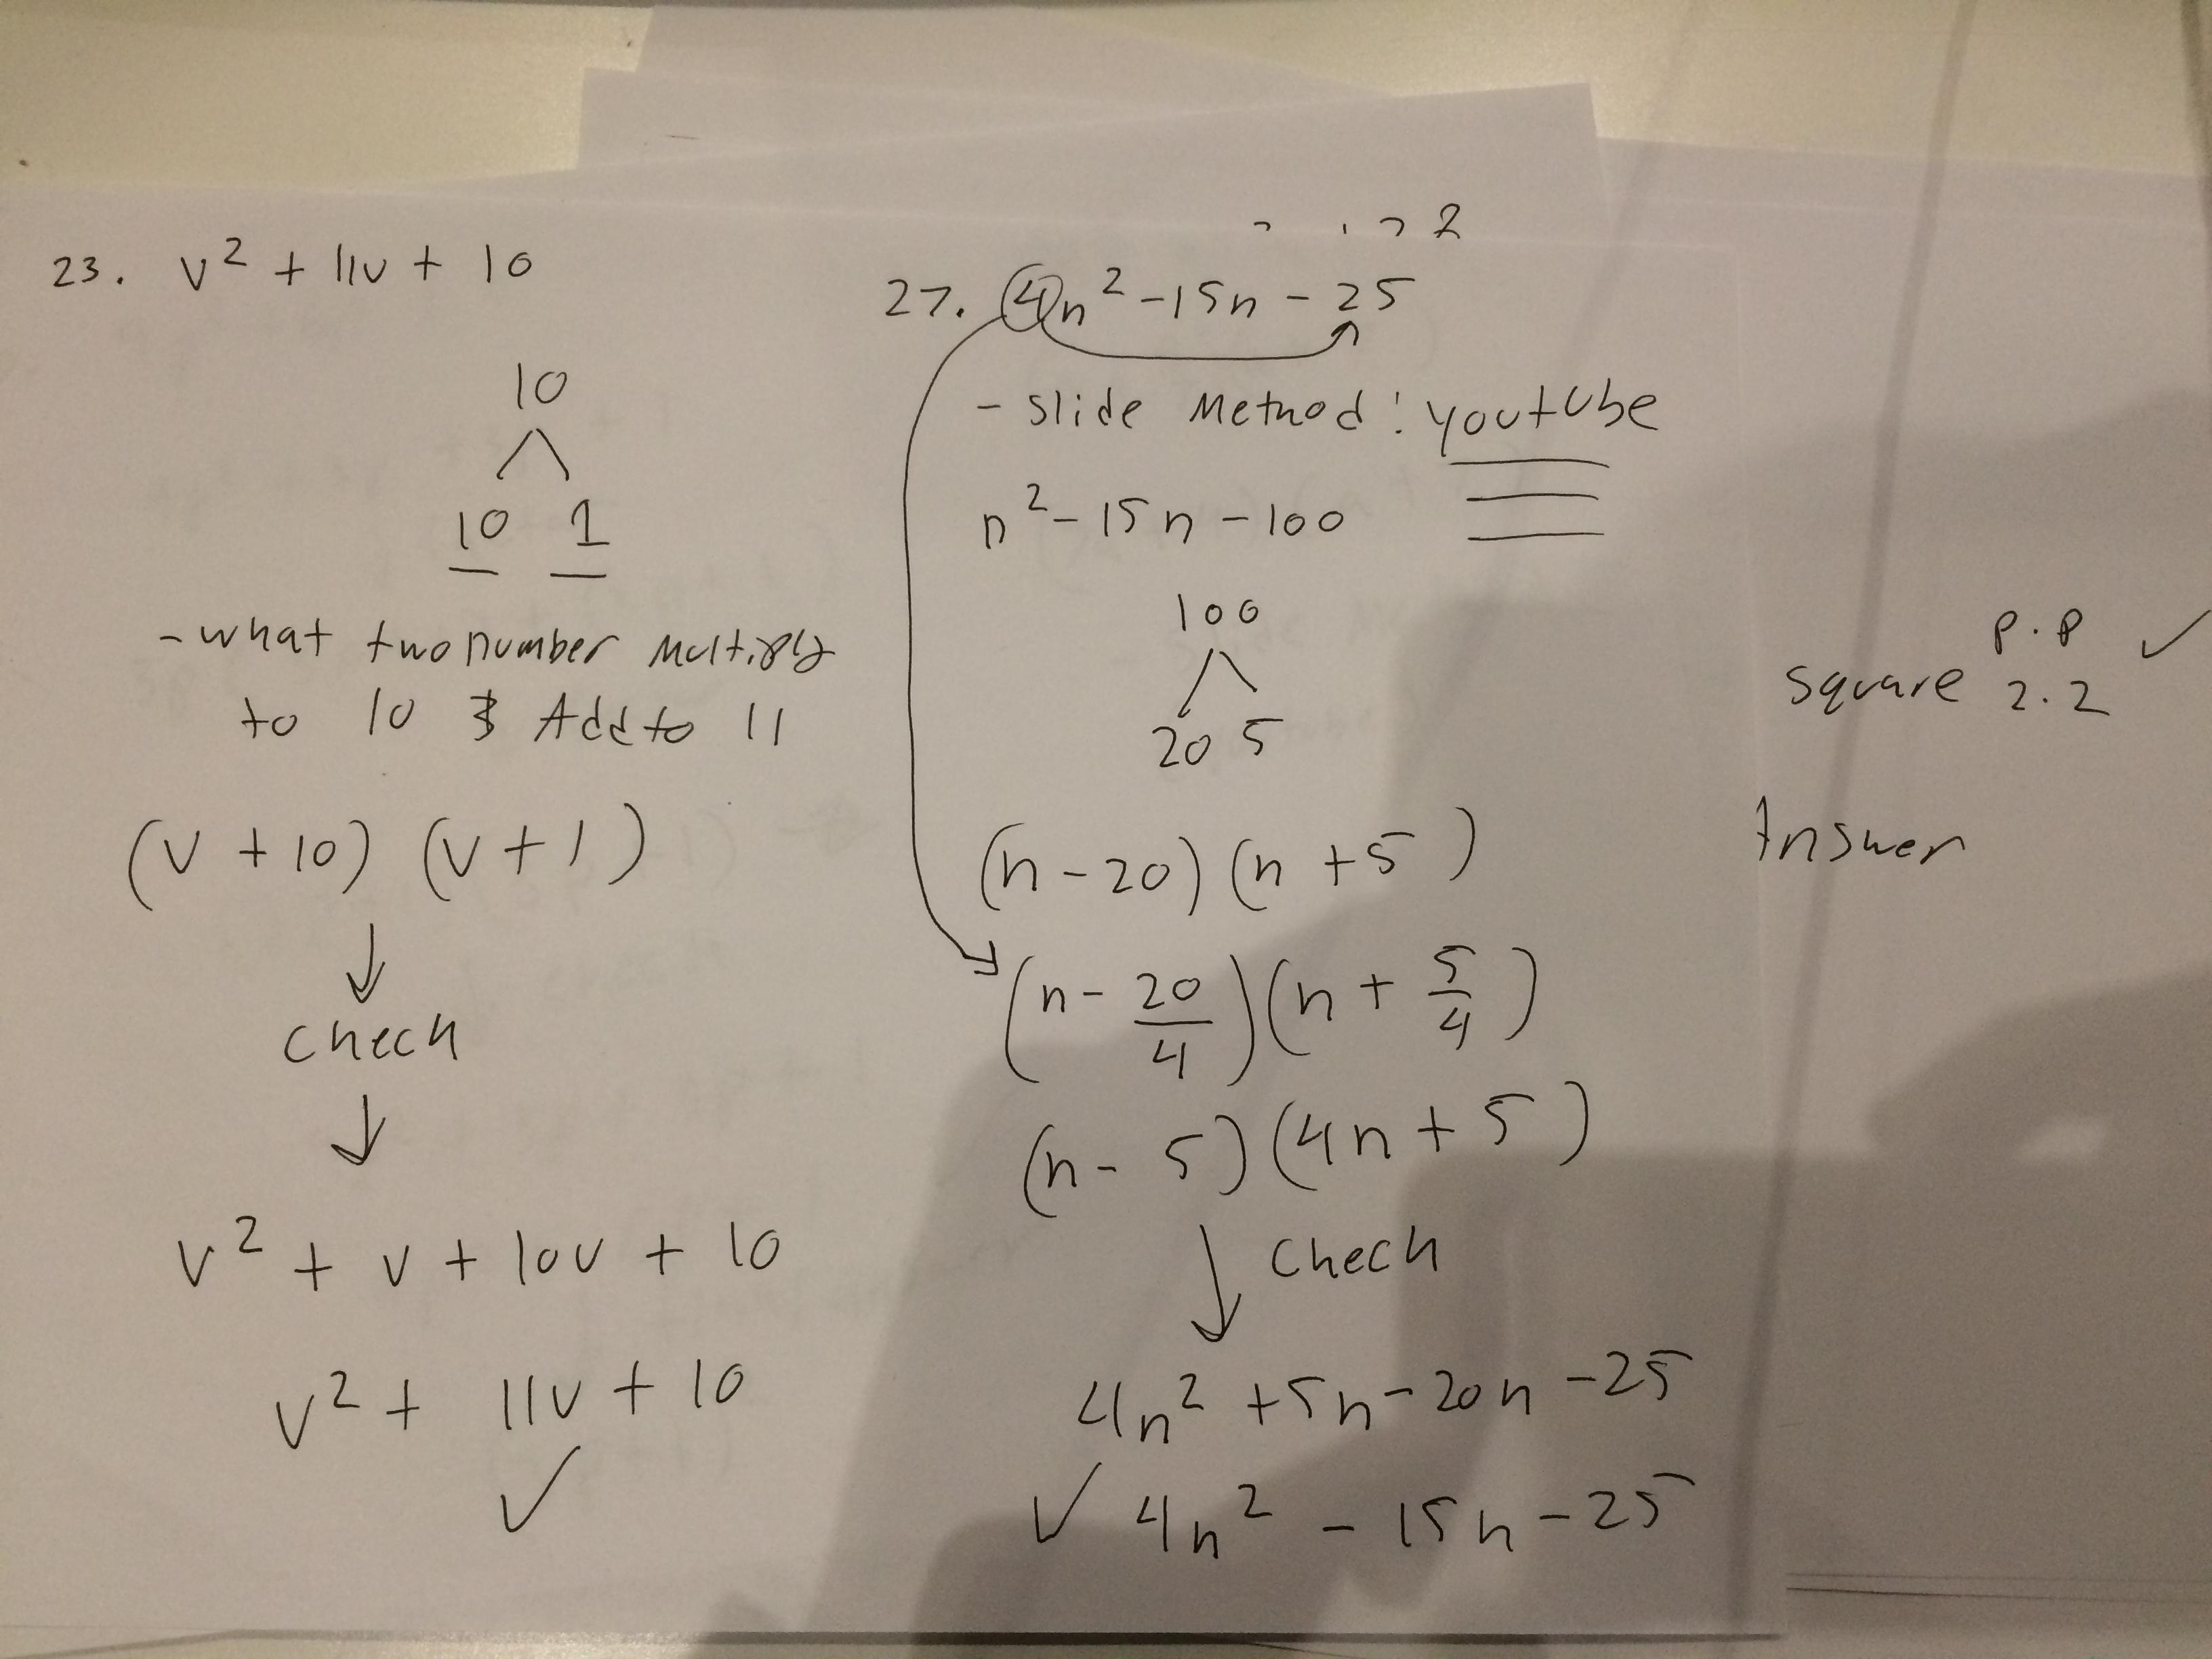 23. v² + 11v + 10
10
10 1
- what two number multiply
to 10 & Add to 11
(v + 10) (v + 1)
check
v² + v + 10v + 10
v² + 11v + 10
✓
2
27. 4n² - 15n - 25
- slide method: youtube
n² - 15n - 100
100
20 5
(n - 20)(n + 5)
(n - 20/4)(n + 5/4)
(n - 5)(4n + 5)
check
4n² + 5n - 20n - 25
✓ 4n² - 15n - 25
p.p ✓
square 2.2
Answer